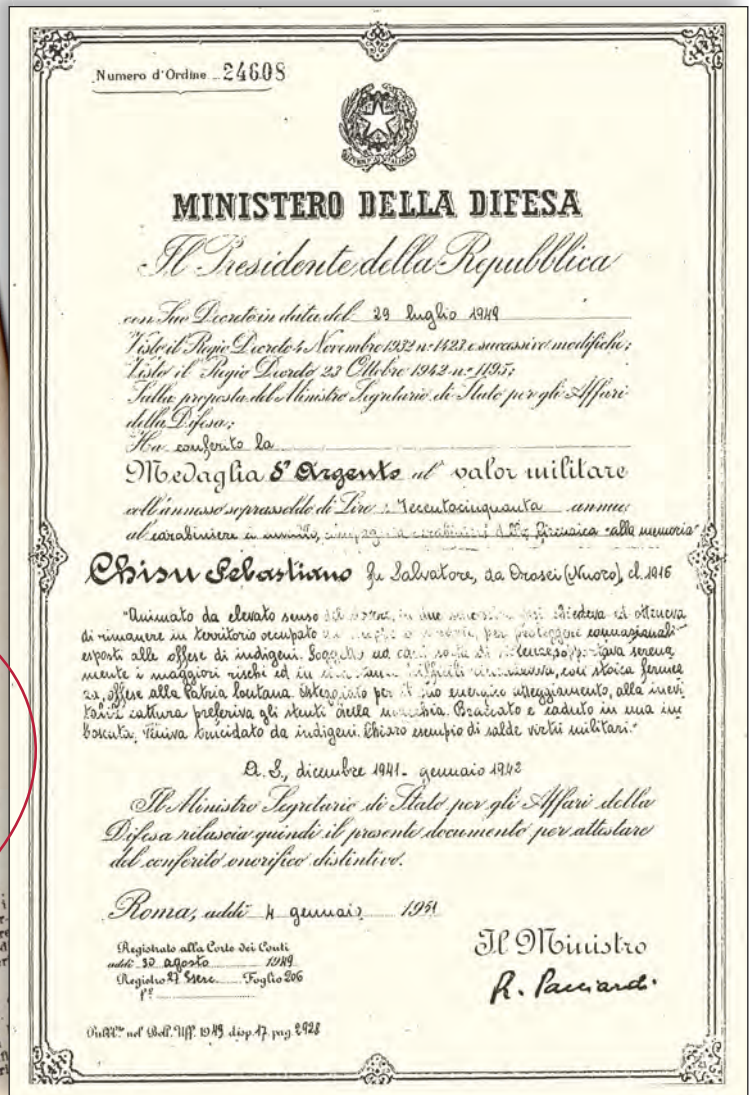 Numero d'Ordine 24608
REPVBBLICA ITALIANA
MINISTERO DELLA DIFESA
Il Presidente della Repubblica
con Suo Decreto in data del 29 luglio 1949
Visto il Regio Decreto 4 Novembre 1932 n° 1423 e successive modifiche;
Visto il Regio Decreto 23 Ottobre 1942 n° 1195;
Sulla proposta del Ministro Segretario di Stato per gli Affari
della Difesa;
Ha conferito la
Medaglia d'Argento al valor militare
coll'annesso soprassoldo di Lire Trecentocinquanta annue
al carabiniere compagnia carabinieri della Cirenaica "alla memoria"
Chisu Sebastiano fu Salvatore, da Orosei (Nuoro), cl. 1916
"Animato da elevato senso del dovere, in due successive fasi chiedeva ed otteneva
di rimanere in territorio occupato per proteggere connazionali
esposti alle offese di indigeni. Soggetto ad ogni sorta di violenze, sopportava serena
mente i maggiori rischi ed in difficili con stoica fermez
za, offese alla Patria lontana. per il suo energico atteggiamento, alla inevi
tabile cattura preferiva gli stenti della macchia. Braccato e caduto in una im
boscata, veniva trucidato da indigeni. Chiaro esempio di salde virtù militari."
A. S., dicembre 1941 - gennaio 1942
Il Ministro Segretario di Stato per gli Affari della
Difesa rilascia quindi il presente documento per attestare
del conferito onorifico distintivo.
Roma, addì 4 gennaio 1951
Registrato alla Corte dei Conti
addì 30 agosto 1949
Registro 27 Eserc. Foglio 206
Il Ministro
R. Pacciardi
Pubbl.to nel Boll. Uff. 1949 disp. 17 pag. 2928